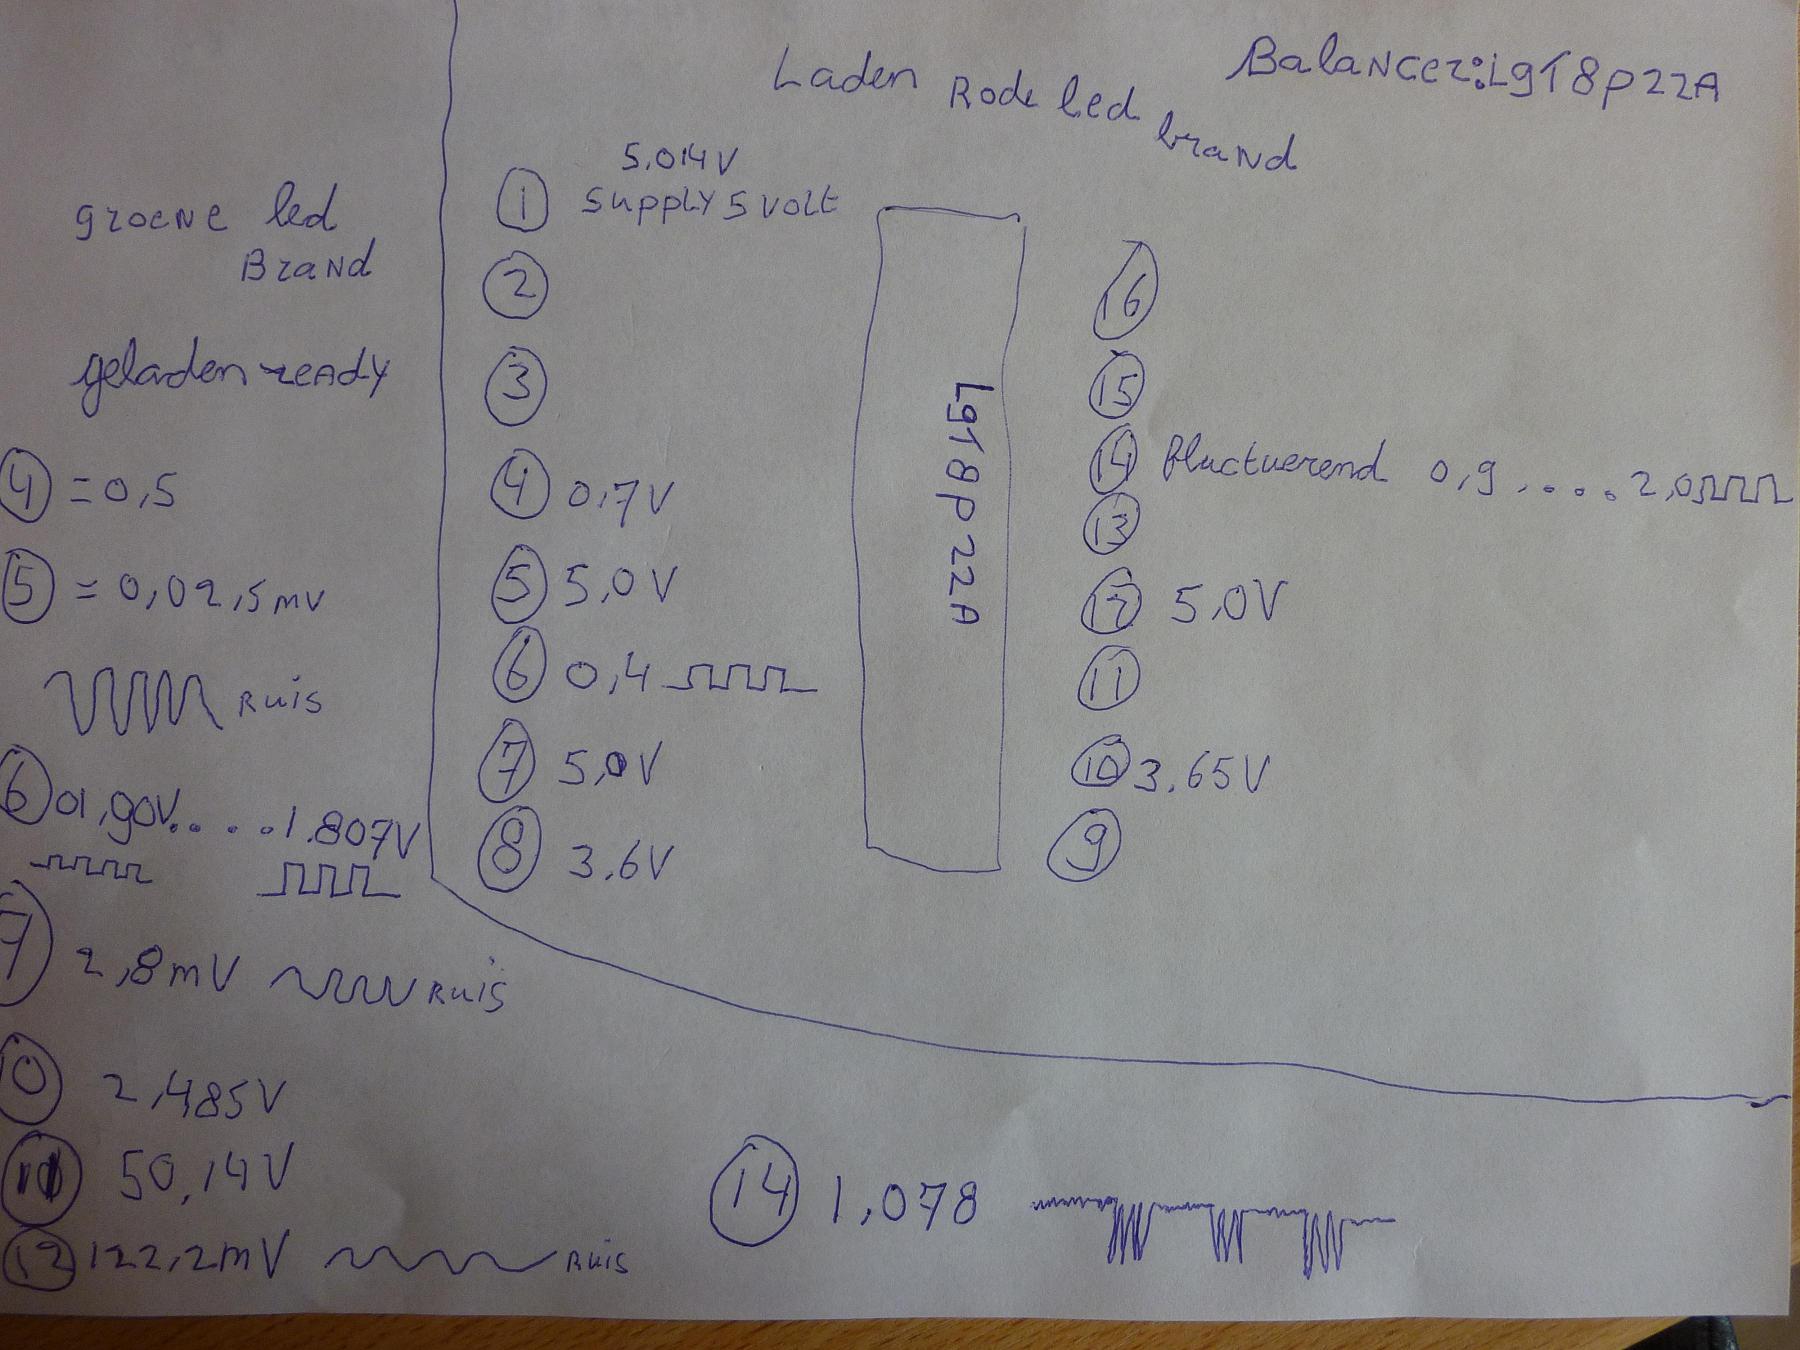 Balancer: LgT8p22A
Laden Rode led brand
5.014V
① Supply 5 volt
②
③
④ 0,7V
⑤ 5,0V
⑥ 0,4
⑦ 5,0V
⑧ 3,6V
LgT8p22A
⑯
⑮
⑭ fluctuerend 0,9 .... 2,0
⑬
⑫ 5.0V
⑪
⑩ 3,65V
⑨
groene led
Brand
geladen ready
④ = 0,5
⑤ = 0,02,5mV
Ruis
⑥ 01,90V.....1.807V
⑦ 2,8mV Ruis
0 2,485V
50,14V
⑫ 122,2mV Ruis
⑭ 1,078